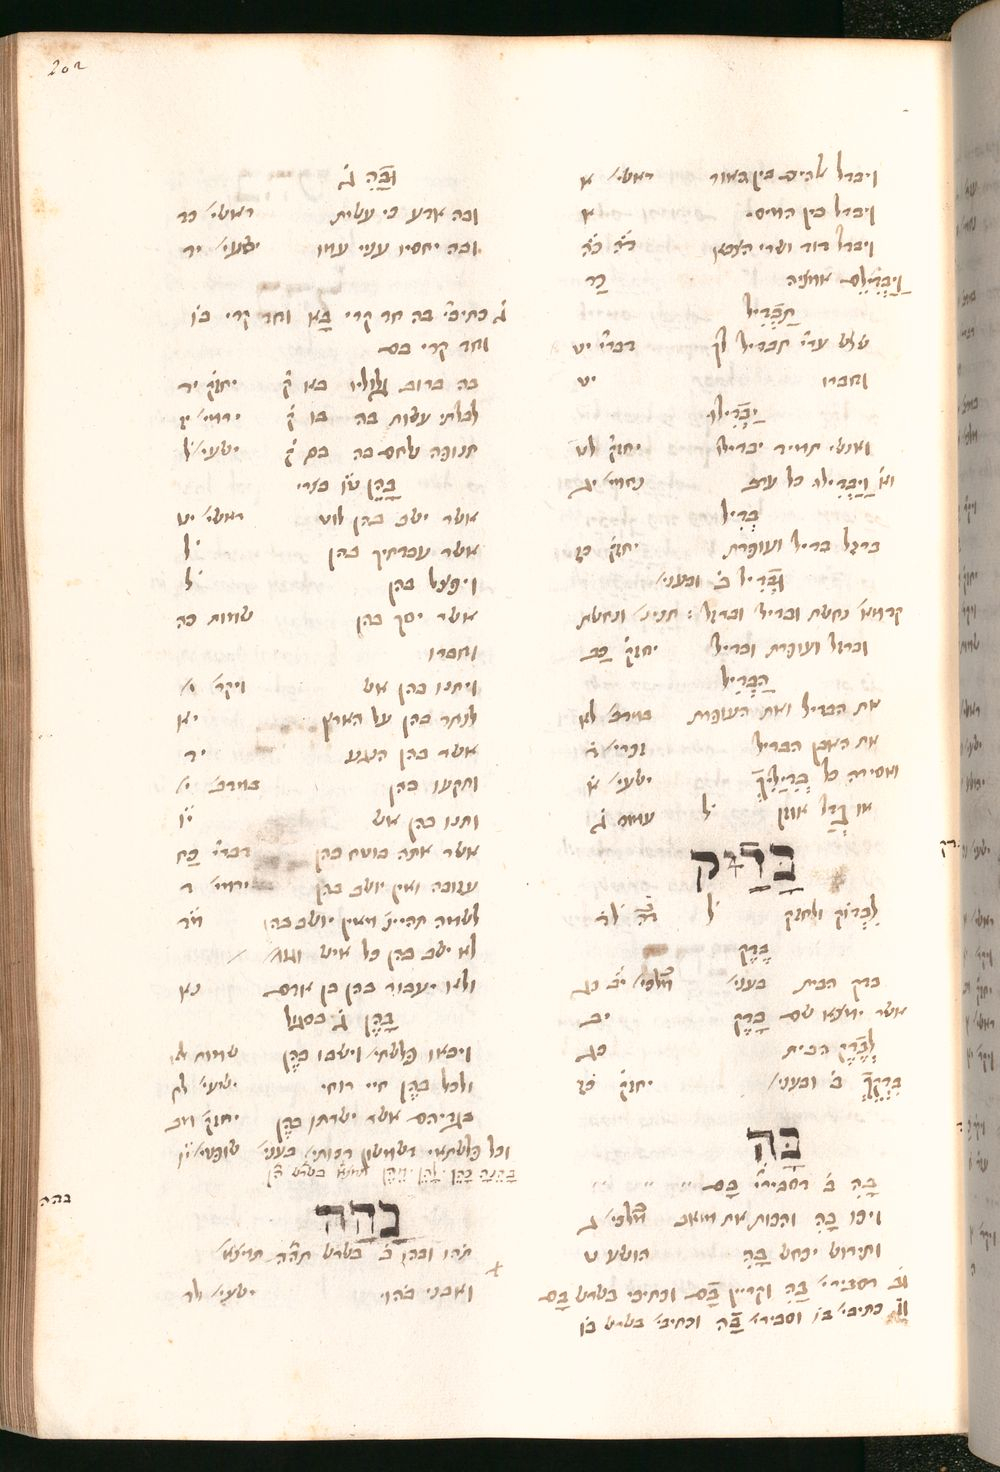 202
ויבדל אלהים בין האור ראשי׳ א
ויבדל בין המים א
ויבדל דוד ושרי הצבא
וַיַבְדִילֵם אמציה כד
תַבְדִיל
שלש ערי׳ תבדיל לך דברי׳ יט
וחברו יט
יַבְדִילוּ
ואנשי תמיד יבדילו יחזק׳ לט
וא׳ וַיַבְדִילוּ כל ערב נחמי׳ יג
בְדִיל
ברזל בדיל ועופרת יחזק׳ כז
וּבְדִיל ב׳ ובעני׳
קדמא׳ נחשת ובדיל וברזל : תניני׳ ונחשת
וברזל ועופרת ובדיל יחזק׳ כב
הַבְדִיל
את הבדיל ואת העופרת במדב׳ לא
את האבן הבדיל זכרי׳ ד
ואסירה כל בְדִילָיִךְ ישעי׳ א
או בְדַל אוזן עמוס ג
בָּדַק
לִבְדוֹק ולחזק
בֶּדֶק
בדק הבית בעני׳ מלכי׳ יב כג
אשר ימצא שם בָדֶק יב
לְבֶדֶק הבית כב
בִדְקֵךְ ב׳ ובעני׳ יחזק׳ כז
בָּהּ
בָהּ ב׳ דסבירי׳ בָם
ויכו בָהּ והכות את מואב מלכי׳ ג
ותירוש יכחש בָהּ הושע ט
וב׳ דסבירי׳ בָהּ וקריין בָם וכתיבי׳ בשרש בָם
וג׳ כתיבי׳ בו וסבירי׳ בָּהּ וכתיבי׳ בשרש בו
וּבָהּ ג
ובה ארע כי עשית ראשי׳ כד
ובה יחסיו עניי עמו ישעי׳ יד
ג׳ כתיבי׳ בה חד קרי בָא וחד קרי בו
וחד קרי בם
בה ברוב גלוליו בא ק׳ יחזק׳ יד
לבלתי עשות בה בו ק׳ ירמי׳ יז
תנופה נלחם בה בם ק׳ ישעי׳ ל
בָהֵן ט״ו בצרי
אשר ישב בהן לוט ראשי׳ יט
אשר עברתיך בהן ל
ויפצל בהן ל
אשר יסך בהן שמות כה
וחברו
ויתנו בהן אש ויקר׳ י
לנתר בהן על הארץ יא
אשר בהן הנגע יד
ותקעו בהן במדב׳ י
ותנו בהן אש יו
אשר אתה בוטח בהן דברי׳ כח
עזובה ואין יושב בהן ירמי׳ ד
לשמה תהיינ׳ מאין יושב בהן מ״ד
לא ישב בהן כל איש וגו׳
ולא יעבור בהן בן אדם נא
בָהֶן ג׳ בסגול
ויבאו פלשתי׳ וישבו בָהֶן שמוא׳ לא
ולכל בָהֶן חיי רוחי ישעי׳ לח
בגדיהם אשר ישרתו בָהֶן יחזק׳ מב
וכל פלשתאי דשמשון דכותי׳ בעני׳ שופטי׳ יו
בָּהֵנָה בָהֶן לָהֶן מֵהֶן תמצא בשרש הֵן
בהה
בָהָה
תהו ובהו ב׳ בשרש תהה תמצא׳
ואבני בהו׳ ישעי׳ לד